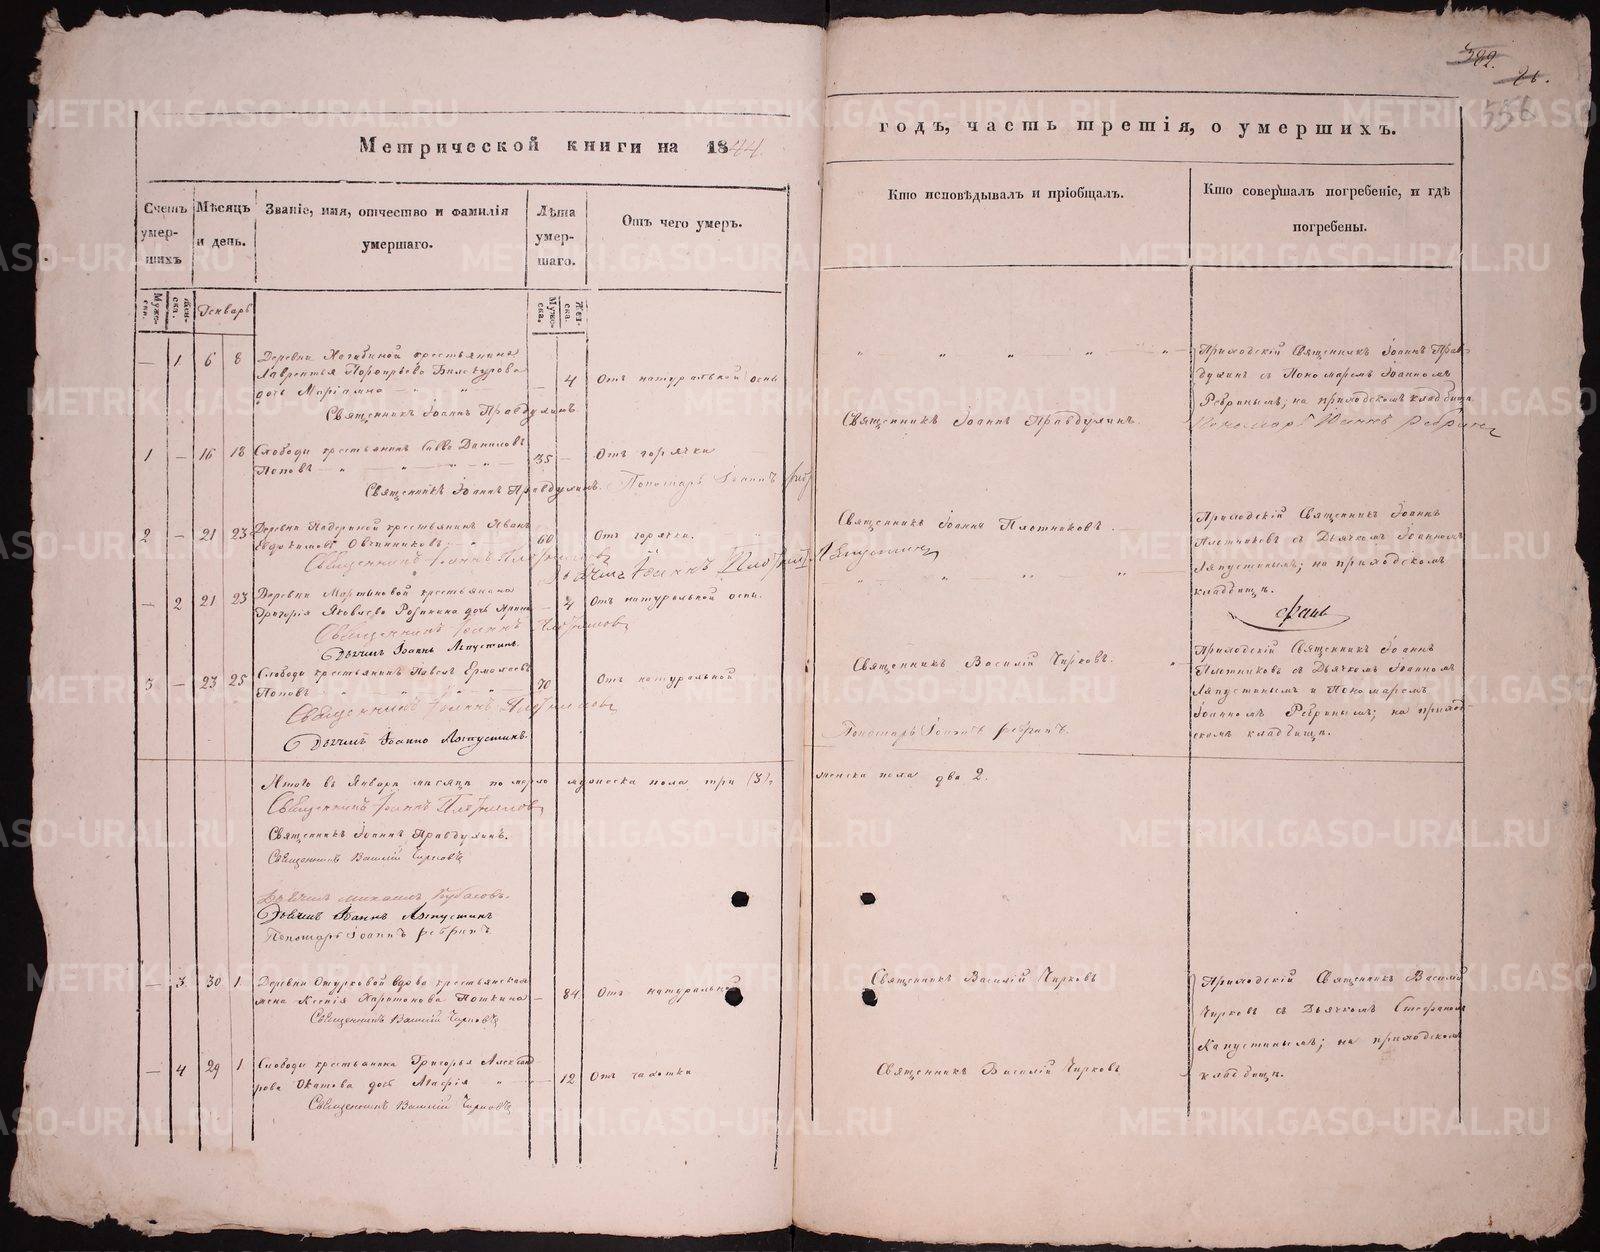 322.
26.
556
Метрической книги на 1844.
годъ, часть третія, о умершихъ.
Счетъ умер-шихъ
Мѣсяцъ и день.
Званіе, имя, отчество и фамилія умершаго.
Лѣта умер-шаго.
Отъ чего умеръ.
Кто исповѣдывалъ и пріобщалъ.
Кто совершалъ погребеніе, и гдѣ погребены.
Муже-ска.
Жен-ска.
Генварь
Муже-ска.
Жен-ска.
— 1 6 8 Деревни крестьянина
Лаврентья Порфирьева
дочь Маріамна — 4 Отъ натуральной оспы
Священникъ Іоаннъ Правдухинъ.
Приходскій Священникъ Іоаннъ Прав-
духинъ с Пономаремъ Іоанномъ
Ребринымъ; на приходскомъ кладбищѣ.
Пономарь Іоаннъ Ребринъ
1 — 16 18 Слободы крестьянинъ Савва Даниловъ
Поповъ 35 — Отъ горячки
Священникъ Іоаннъ Правдухинъ.
Священникъ Іоаннъ Правдухинъ. Пономарь Іоаннъ Ребринъ
2 — 21 23 Деревни крестьянинъ Иванъ
Евдокимовъ Овчинниковъ 60 Отъ горячки.
Священникъ Іоаннъ Плотниковъ.
Священникъ Іоаннъ Плотниковъ
Дьячекъ Іоаннъ Лапустинъ
Приходскій Священникъ Іоаннъ
Плотниковъ с Дьячкомъ Іоанномъ
Лапустинымъ; на приходскомъ
кладбищѣ.
— 2 21 23 Деревни Мартыновой крестьянина
Григорія Яковлева дочь Ирина — 4 Отъ натуральной оспы.
Священникъ Іоаннъ Плотниковъ
Дьячекъ Іоаннъ Лапустинъ.
3 — 23 25 Слободы крестьянинъ Павелъ Ермолаевъ
Поповъ 70 Отъ натуральной
Священникъ Василій Чирковъ.
Священникъ Іоаннъ Плотниковъ
Дьячекъ Іоаннъ Лапустинъ.
Пономарь Іоаннъ Ребринъ.
Приходскій Священникъ Іоаннъ
Плотниковъ с Дьячкомъ Іоанномъ
Лапустинымъ и Пономаремъ
Іоанномъ Ребринымъ; на приход-
скомъ кладбищѣ.
Итого въ Январѣ мѣсяцѣ по мерло мужеска пола три (3); женска пола два 2.
Священникъ Іоаннъ Плотниковъ
Священникъ Іоаннъ Правдухинъ.
Священникъ Василій Чирковъ
Дьячекъ Михаилъ Кубасовъ.
Дьячекъ Іоаннъ Лапустинъ
Пономарь Іоаннъ Ребринъ
— 3 30 1 Деревни вдова крестьянская
жена Ксенія Харитонова — 84 Отъ натуральной
Священникъ Василій Чирковъ
Священникъ Василій Чирковъ
Приходскій Священникъ Василій
Чирковъ с Дьячкомъ Стефаномъ
Капустинымъ; на приходскомъ
кладбищѣ.
— 4 29 1 Слободы крестьянина Григорья Александ
рова дочь Марія — 12 Отъ чахотки
Священникъ Василій Чирковъ
Священникъ Василій Чирковъ
METRIKI.GASO-URAL.RU